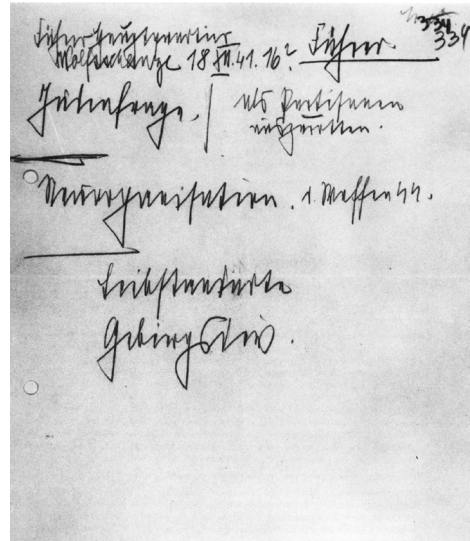 334
334
Führerhauptquartier
Wolfschanze 18 XII. 41. 16ʰ Führer
Judenfrage. | als Partisanen
auszurotten.
Neuorganisation. d. Waffen SS.
Leibstandarte
Gebirgsdiv.